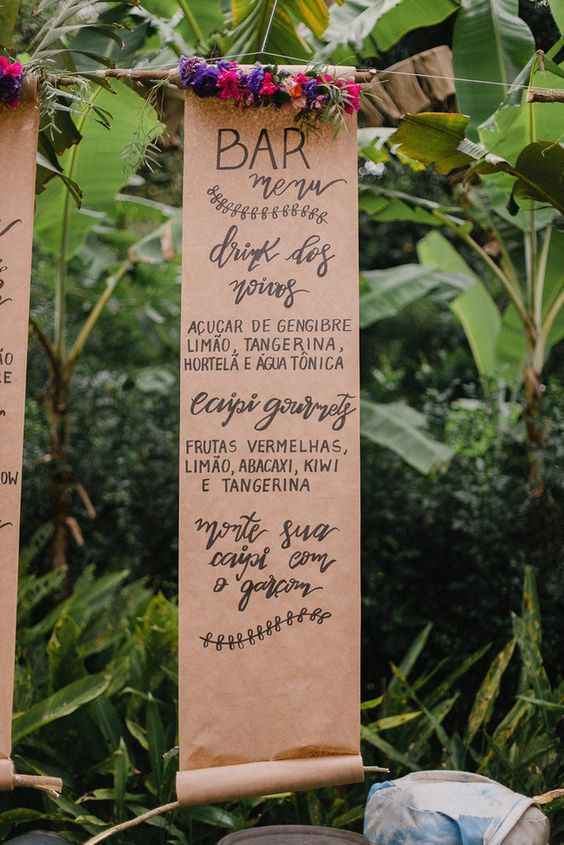 BAR
menu
drink dos
noivos
AÇUCAR DE GENGIBRE
LIMÃO, TANGERINA,
HORTELÃ E ÁGUA TÔNICA
caipi gourmets
FRUTAS VERMELHAS,
LIMÃO, ABACAXI, KIWI
E TANGERINA
monte sua
caipi com
o garçom